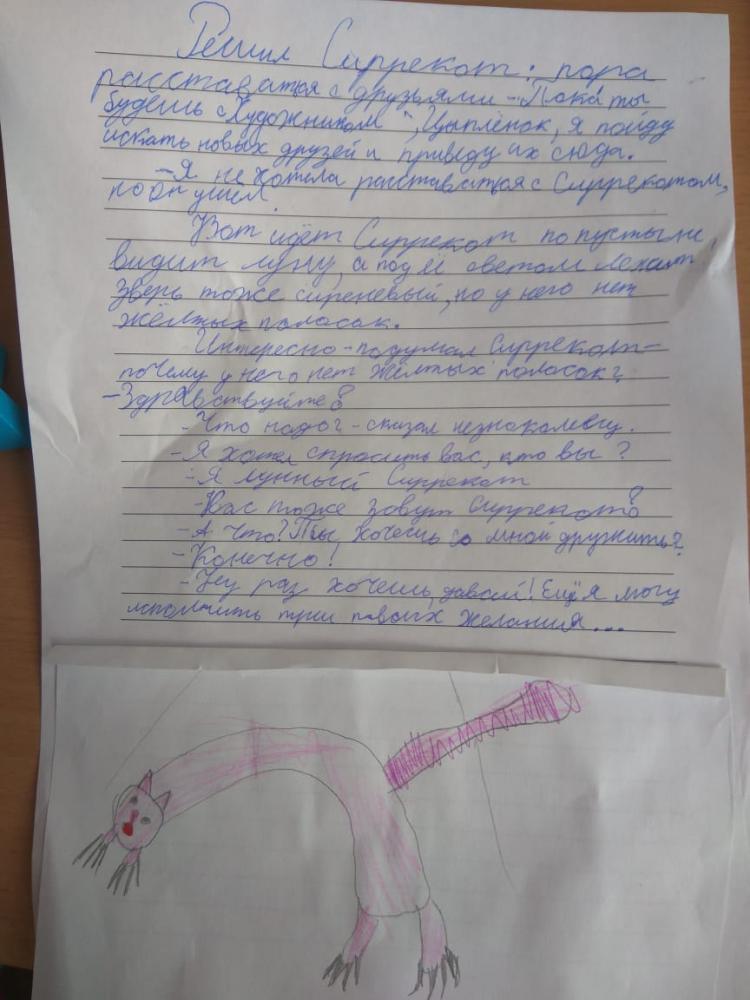 Решил Сиррекот: пора
расставаться с друзьями - Пока ты
будешь с "Художником", Цыплёнок, я пойду
искать новых друзей и приведу их сюда.
- Я не хотела расставаться с Сиррекотом,
но он ушел.
Вот идёт Сиррекот по пустыне,
видит луну, а под её светом лежит
зверь тоже сиреневый, но у него нет
жёлтых полосок.
Интересно - подумал Сиррекот -
почему у него нет жёлтых полосок?
- Здравствуйте!
- Что надо? - сказал
- Я хотел спросить вас, кто вы?
- Я лунный Сиррекот
- Вас тоже зовут Сиррекот?
- А что? Ты хочешь со мной дружить?
- Конечно!
- Ну раз хочешь, давай! Ещё я могу
исполнить три желания...